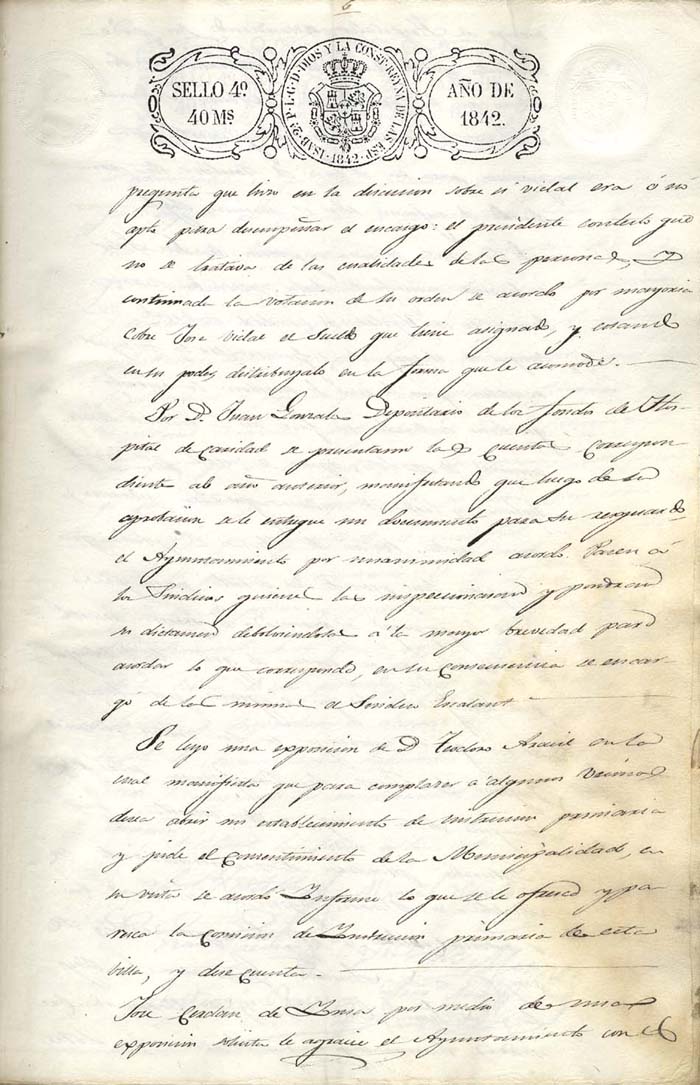 6
SELLO 4º.
40 Ms
ISAB. 2ª P. L. G. D. DIOS Y LA CONST. REYNA DE LAS ESP. 1842.
AÑO DE
1842.
pregunta que hizo en la discusion sobre si vidal era ó nó
apto para desempeñar el encargo: el presidente contesto que
no se tratava de las cualidades de la persona, Y
continuada la votacion de su orden se acordo por mayoria
cobre Jose Vidal el Sueldo que tiene asignado, y estando
en su poder distribuyalo en la forma que le acomode.
Por D. Juan Gonzalez Depositario de los fondos de Hos-
pital de caridad se presentaron las cuentas correspon-
diente al año anterior, manifestando que luego de su
aprobacion se le entregue un documento para su resguardo
el Ayuntamiento por unanimidad acordo. Pacen á
los Sindicos quienes las inspeccionaran y pondran
su dictamen debolviendolas á la mayor brevedad para
acordar lo que corresponda, en su consecuencia se encar-
gó de las mismas el Sindico Escalant
Se leyo una exposicion de D. Teodoro Aracil en la
cual manifiesta que para complacer á algunos Vecinos
desea abrir un establecimiento de instrucion primaria
y pide el consentimiento de la Municipalidad, en
su vista se acordó Informe lo que se le ofresca y pa-
resca la Comision de Instrucion primaria de esta
villa, y dese cuenta.
Jose Cerdan de por medio de una
exposicion solicita le agracie el Ayuntamiento con el